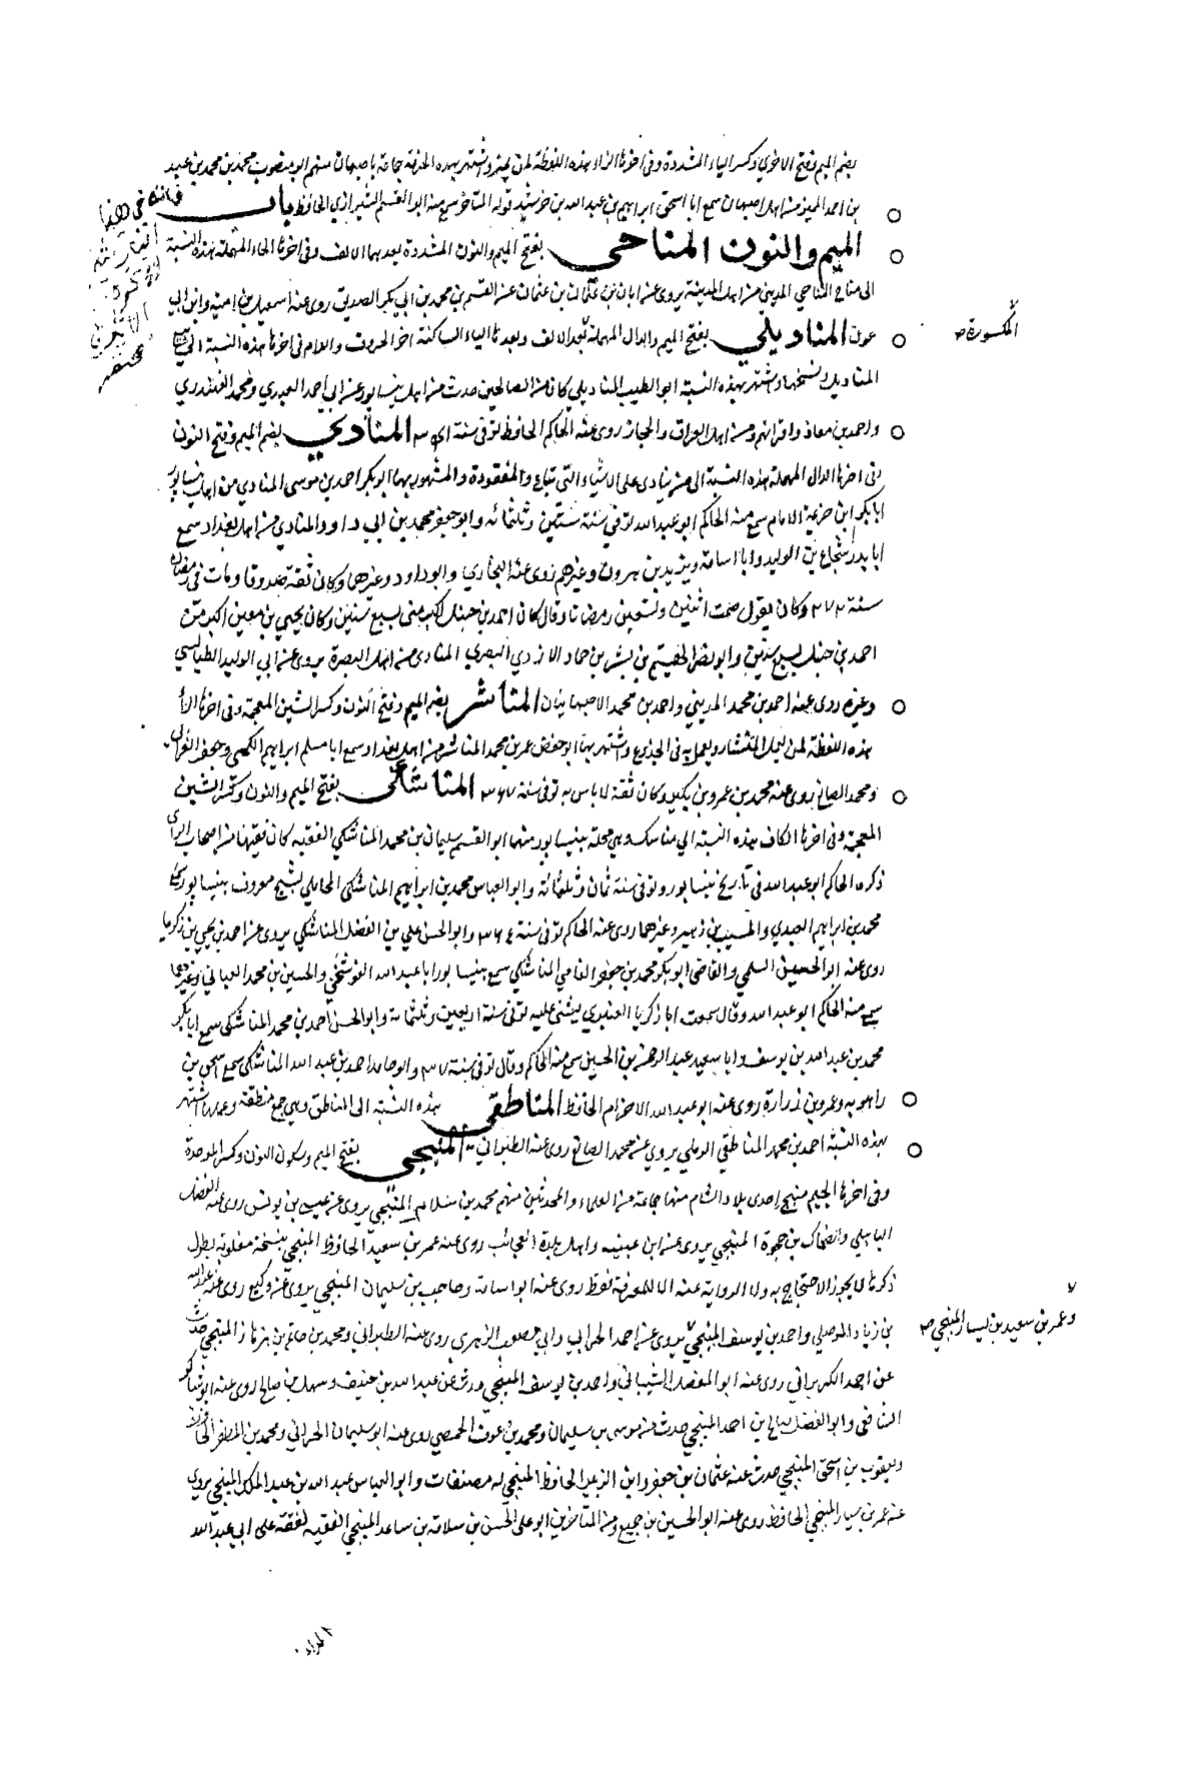 بضم الميم وفتح الاخرى وكسر الياء المشددة وفى اخرها الزاء هذه اللفظة لمن يميز واشتهر بهذه الحرفة جماعة باصبهان منهم ابو منصور محمد بن محمد بن عبيد
بن احمد المميز من اهل اصبهان سمع ابا اسحق ابراهيم بن عبد الله بن خرشيد قوله المتاخر سمع منه ابو القسم الشيرازي الحافظ باب
الميم والنون المناحى بفتح الميم والنون المشددة بعدهما الالف وفى اخرها الحاء المهملة هذه النسبة
الى مناح المناحي المديني من اهل المدينة يروى عن ابان بن عثمان بن عفان عن القسم بن محمد بن ابي بكر الصديق روى عنه اسمعيل بن امية وابن ابي
عون المناديلي بفتح الميم والدال المهملة بعد الالف وبعدها الياء الساكنة اخر الحروف واللام فى اخرها هذه النسبة الى بيع
المناديل ونسجها واشتهر بهذه النسبة ابو الطيب المناديلي كان من الصالحين حدث من اهل نيسابور عن ابي احمد العبدي ومحمد
واحمد بن معاذ واقرانهم ومن اهل العراق والحجاز روى عنه الحاكم الحافظ توفى سنة المنادي بضم الميم وفتح النون
وفى اخرها الدال المهملة هذه النسبة الى من ينادى على الاشياء التى تباع والمفقودة والمشهور بها ابو بكر احمد بن موسى المنادي من اهل نيسابور
ابا بكر ابن خزيمة الامام سمع منه الحاكم ابو عبد الله توفى سنة ستين وثلثمائه وابو جعفر محمد بن ابي داود المنادي من اهل بغداد سمع
ابا بدر شجاع بن الوليد وابا اسامة ويزيد بن هرون وغيرهم روى عنه البخاري وابو داود وغيرهما وكان ثقة صدوقا ومات فى رمضان
سنة ٢٧٢ وكان يقول صمت اثنين وتسعين رمضانا وقال كان احمد بن حنبل اكبر منى بسبع سنين وكان يحيى بن معين اكبر من
احمد بن حنبل بسبع سنين وابو نصر الهيثم بن بشر بن حماد الازدي البصري المنادى من اهل البصرة يروى عن ابي الوليد الطيالسي
وغيره روى عنه احمد بن محمد المديني واحمد بن محمد الاصبهانيان المناشر بضم الميم وفتح النون وكسر الشين المعجمة وفى اخرها الرا
هذه اللفظة لمن يعمل المنشار ويعمل به فى الجذوع واشتهر بها ابو حفص عمر بن محمد المناشر من اهل بغداد سمع ابا مسلم ابراهيم الكجى وجعفر
ومحمد الصائغ روى عنه محمد بن عمر بن بكير وكان ثقة لا باس به توفى سنة ٣٦٧ المناشكى بفتح الميم والنون وكسر الشين
المعجمة وفى اخرها الكاف هذه النسبة الى مناسك وهي محلة بنيسابور منها ابو القسم سليمان بن محمد المناشكي الفقيه كان فقيها من اصحاب الراى
ذكره الحاكم ابو عبد الله فى تاريخ نيسابور وتوفى سنة ثمان وثلثمائة وابو العباس محمد بن ابراهيم المناشكي المحاملي شيخ معروف بنيسابور سمع
محمد بن ابراهيم العبدي والمسيب بن زهير وغيرهما روى عنه الحاكم توفى سنة ٣٦٤ وابو الحسن علي بن الفضل المناشكي يروى عن احمد بن يحيى بن زكريا
روى عنه ابو الحسين السلمي والقاضى ابو بكر محمد بن جعفر الفامي المناشكي سمع بنيسابور ابا عبد الله البوشنجي والحسين بن محمد القباني وغيرهما
سمع منه الحاكم ابو عبد الله وقال سمعت ابا زكريا العنبري يثنى عليه توفى سنة اربعين وثلثمائة وابو الحسن احمد بن محمد المناشكى سمع ابا بكر
محمد بن عبد الله بن يوسف وابا سعيد عبد الرحمن بن الحسين سمع منه الحاكم وقال توفى سنة وابو حامد احمد بن عبد الله المناشكى سمع اسحق بن
راهويه وعمرو بن زرارة روى عنه ابو عبد الله الاخرم الحافظ المناطقى هذه النسبة الى المناطق وهي جمع منطقة وعملها اشتهر
بهذه النسبة احمد بن محمد المناطقي الرملي يروي عن محمد الصائغ روى عنه الطبراني المنبجى بفتح الميم وسكون النون وكسر الموحدة
وفى اخرها الجيم منبج احدى بلاد الشام منها جماعة من العلماء والمحدثين منهم محمد بن سلام المنبجي يروى عن عيسى بن يونس روى عنه الفضل
الباهلي والضحاك بن حجوة المنبجي يروى عن ابن عيينه واهل بلده العجائب روى عنه عمر بن سعيد الحافظ المنبجي بنسخة مقلوبة يطول
ذكرها لا يجوز الاحتجاج به ولا الرواية عنه الا للمعرفة فقط روى عنه ابو اسامة وحاجب بن سليمان المنبجي يروى عن وكيع روى عنه عبد الله
بن زياد الموصلي واحمد بن يوسف المنبجي يروى عن احمد الحرابي وابي مصعب الزهري روى عنه الطبراني ومحمد بن حاتم بن هزهاز المنبجي حدث
عن احمد روى عنه ابو المفضل الشيباني واحمد بن يوسف المنبجي حدث عن عبد الله بن خبيق وسهل بن صالح روى عنه ابو
الشافعى وابو الفضل صالح بن احمد المنبجي حدث عن موسى بن سليمان ومحمد بن عوف الحمصي روى عنه ابو سليمان الحراني ومحمد بن المظفر الحافظ
ويعقوب بن اسحق المنبجي حدث عنه عثمان بن جعفر وابن الزبير الحافظ المنبجي له مصنفات وابو العباس عبد الله بن عبد الملك المنبجي يروى
عنه عمر بن سيار المنبجي الحافظ روى عنه ابو الحسين بن جميع ومن المتاخرين ابو على الحسن بن سلامة بن ساعد المنبجي الفقيه تفقه على ابي عبد الله
المكسورة صح
وعمر بن سعيد بن يسار المنبجي صح